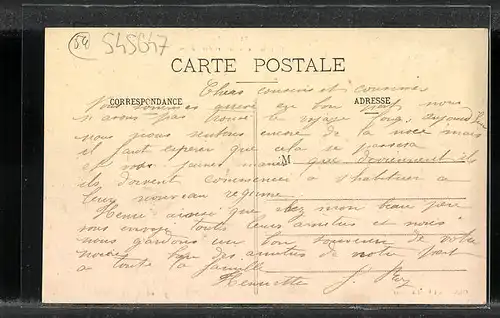 54
545647
CARTE POSTALE
Chers cousins et cousines
CORRESPONDANCE
ADRESSE
Nous sommes arrivé en bon port nous
n avons pas trouvé le voyage long, aujourd'hui
nous nous sentons encore de la noce mais
il faut esperer que cela se passera
et nos jeunes mariés que deviennent ils
M
ils doivent commencer a s'habituer a
leur nouveau regime
Henri ainsi que chez mon beau père
vous envoie toutes leurs amitiés et nous
nous gardons un bon souvenir de votre
noce bien des amitiés de notre part
a toute la famille
Henriette